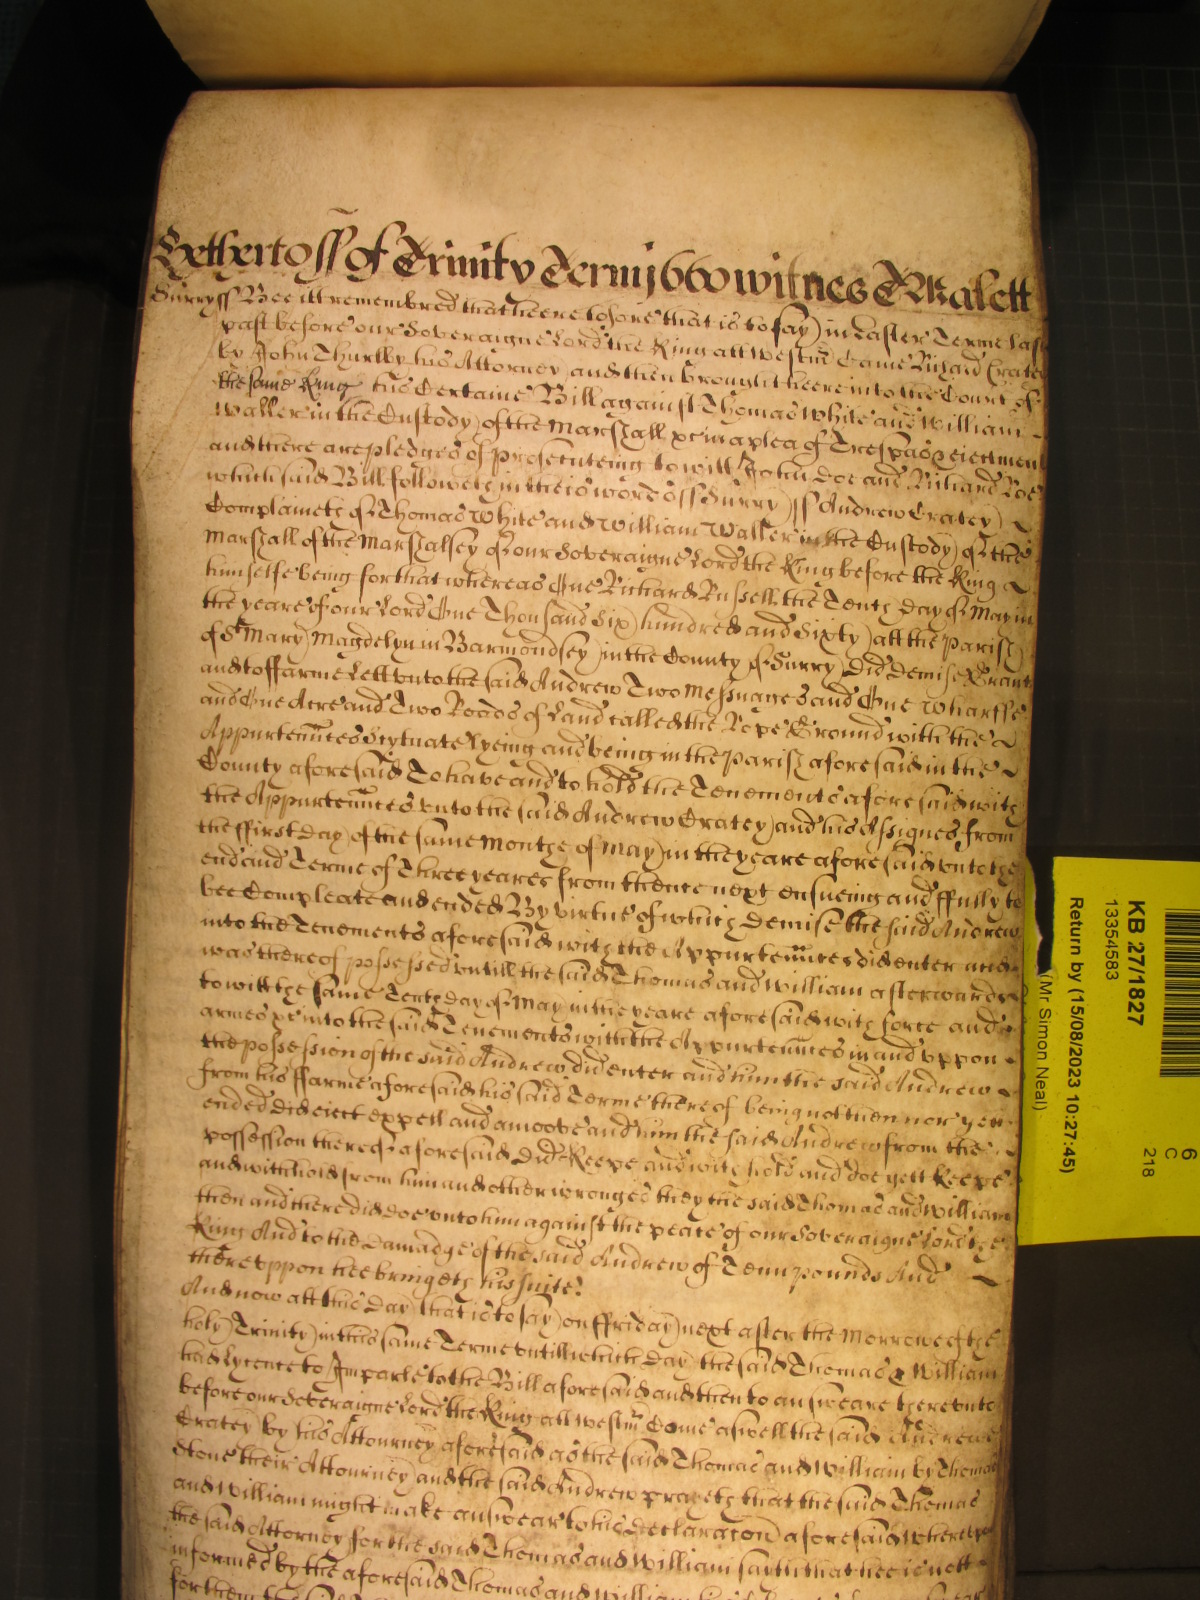 Yet hertoss of Trinity Term 1660 witnes T Malett
Surry ss Bee itt remembred that heere tofore that is to say in Easter Terme last
past before our Soveraigne Lord the King att Westm̃ Came Cratey
by John Thurlby his Attorney and then brought heere into the Court of
the same King his Certaine Bill against Thomas White and William
Waller in the Custody of the Marshall &c in a plea of Trespas & eiectment
and there are pledges of prosecuteing to witt John Doe and Richard Roe
which said Bill followeth in theis words ss Surry ss Andrew Cratey
Complaineth of Thomas White and William Waller in the Custody of the
Marshall of the Marshalsey of our Soveraigne Lord the King before the King
himselfe being for that whereas One Richard Russell the Tenth day of May in
the yeare of our Lord One Thousand Six hundred and Sixty att the parish
of St Mary Magdelyn in Barmondsey in the County of Surry did demise Grant
and to ffarme Lett unto the said Andrew Two Messuages and One Wharffe
and One Acre and Two Roads of Land called the Rope Ground with the
Appurteñnces Scytuate lyeing and being in the parish aforesaid in the
County aforesaid To have and to hold the Tenements aforesaid with
the Appurteñnces unto the said Andrew Cratey and his Assignes from
the ffirst day of the same Month of May in the yeare aforesaid unto the
end and Terme of Three yeares from thence next ensueing and ffully to
bee Compleate and ended By virtue of which demise the said Andrew
into the Tenements aforesaid with the Appurteñnces did enter and
was thereof possessed untill the said Thomas and William afterwards
to witt the same Tenth day of May in the yeare aforesaid with force and
armes &c into the said Tenements with the Appurteñnces in and uppon
the possession of the said Andrew did enter and him the said Andrew
from his ffarme aforesaid his said Terme thereof being not then nor yett
ended did eiect expell and amoove and him the said Andrew from the
possession thereof aforesaid did Keepe and with hold and doe yett Keepe
and withhold from him and other wronges they the said Thomas and William
then and there did doe unto him against the peace of our Soveraigne Lord the
King And to the Damadge of the said Andrew of Tenn pounds And
thereuppon hee bringeth his suite
And now att this day that is to say on ffriday next after the Morrow of the
holy Trinity in this same Terme untill which day the said Thomas & William
had lycence to Imparle to the Bill aforesaid and then to answeare thereunto
before our Soveraigne Lord the King att Westm̃ Come aswell the said Andrew
Cratey by his Attourney aforesaid as the said Thomas and William by Thomas
Stone their Attourney and the said Andrew prayeth that the said Thomas
and William might make answear to his Declaracon aforesaid whereuppon
the said Attorney for the said Thomas and William saith that hee is nott
informed by the aforesaid Thomas and William
for them
KB 27/1827
13354583
Return by (15/08/2023 10:27:45)
(Mr Simon Neal)
6
C
218